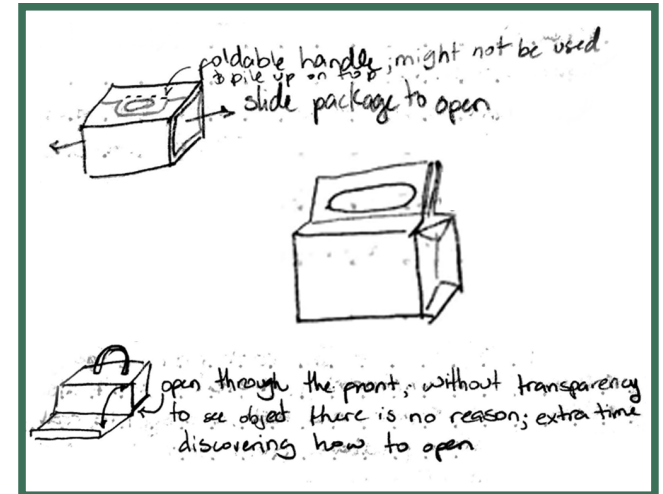 foldable handle, might not be used
to pile up on top
slide package to open
open through the front, without transparency
to see object there is no reason; extra time
discovering how to open